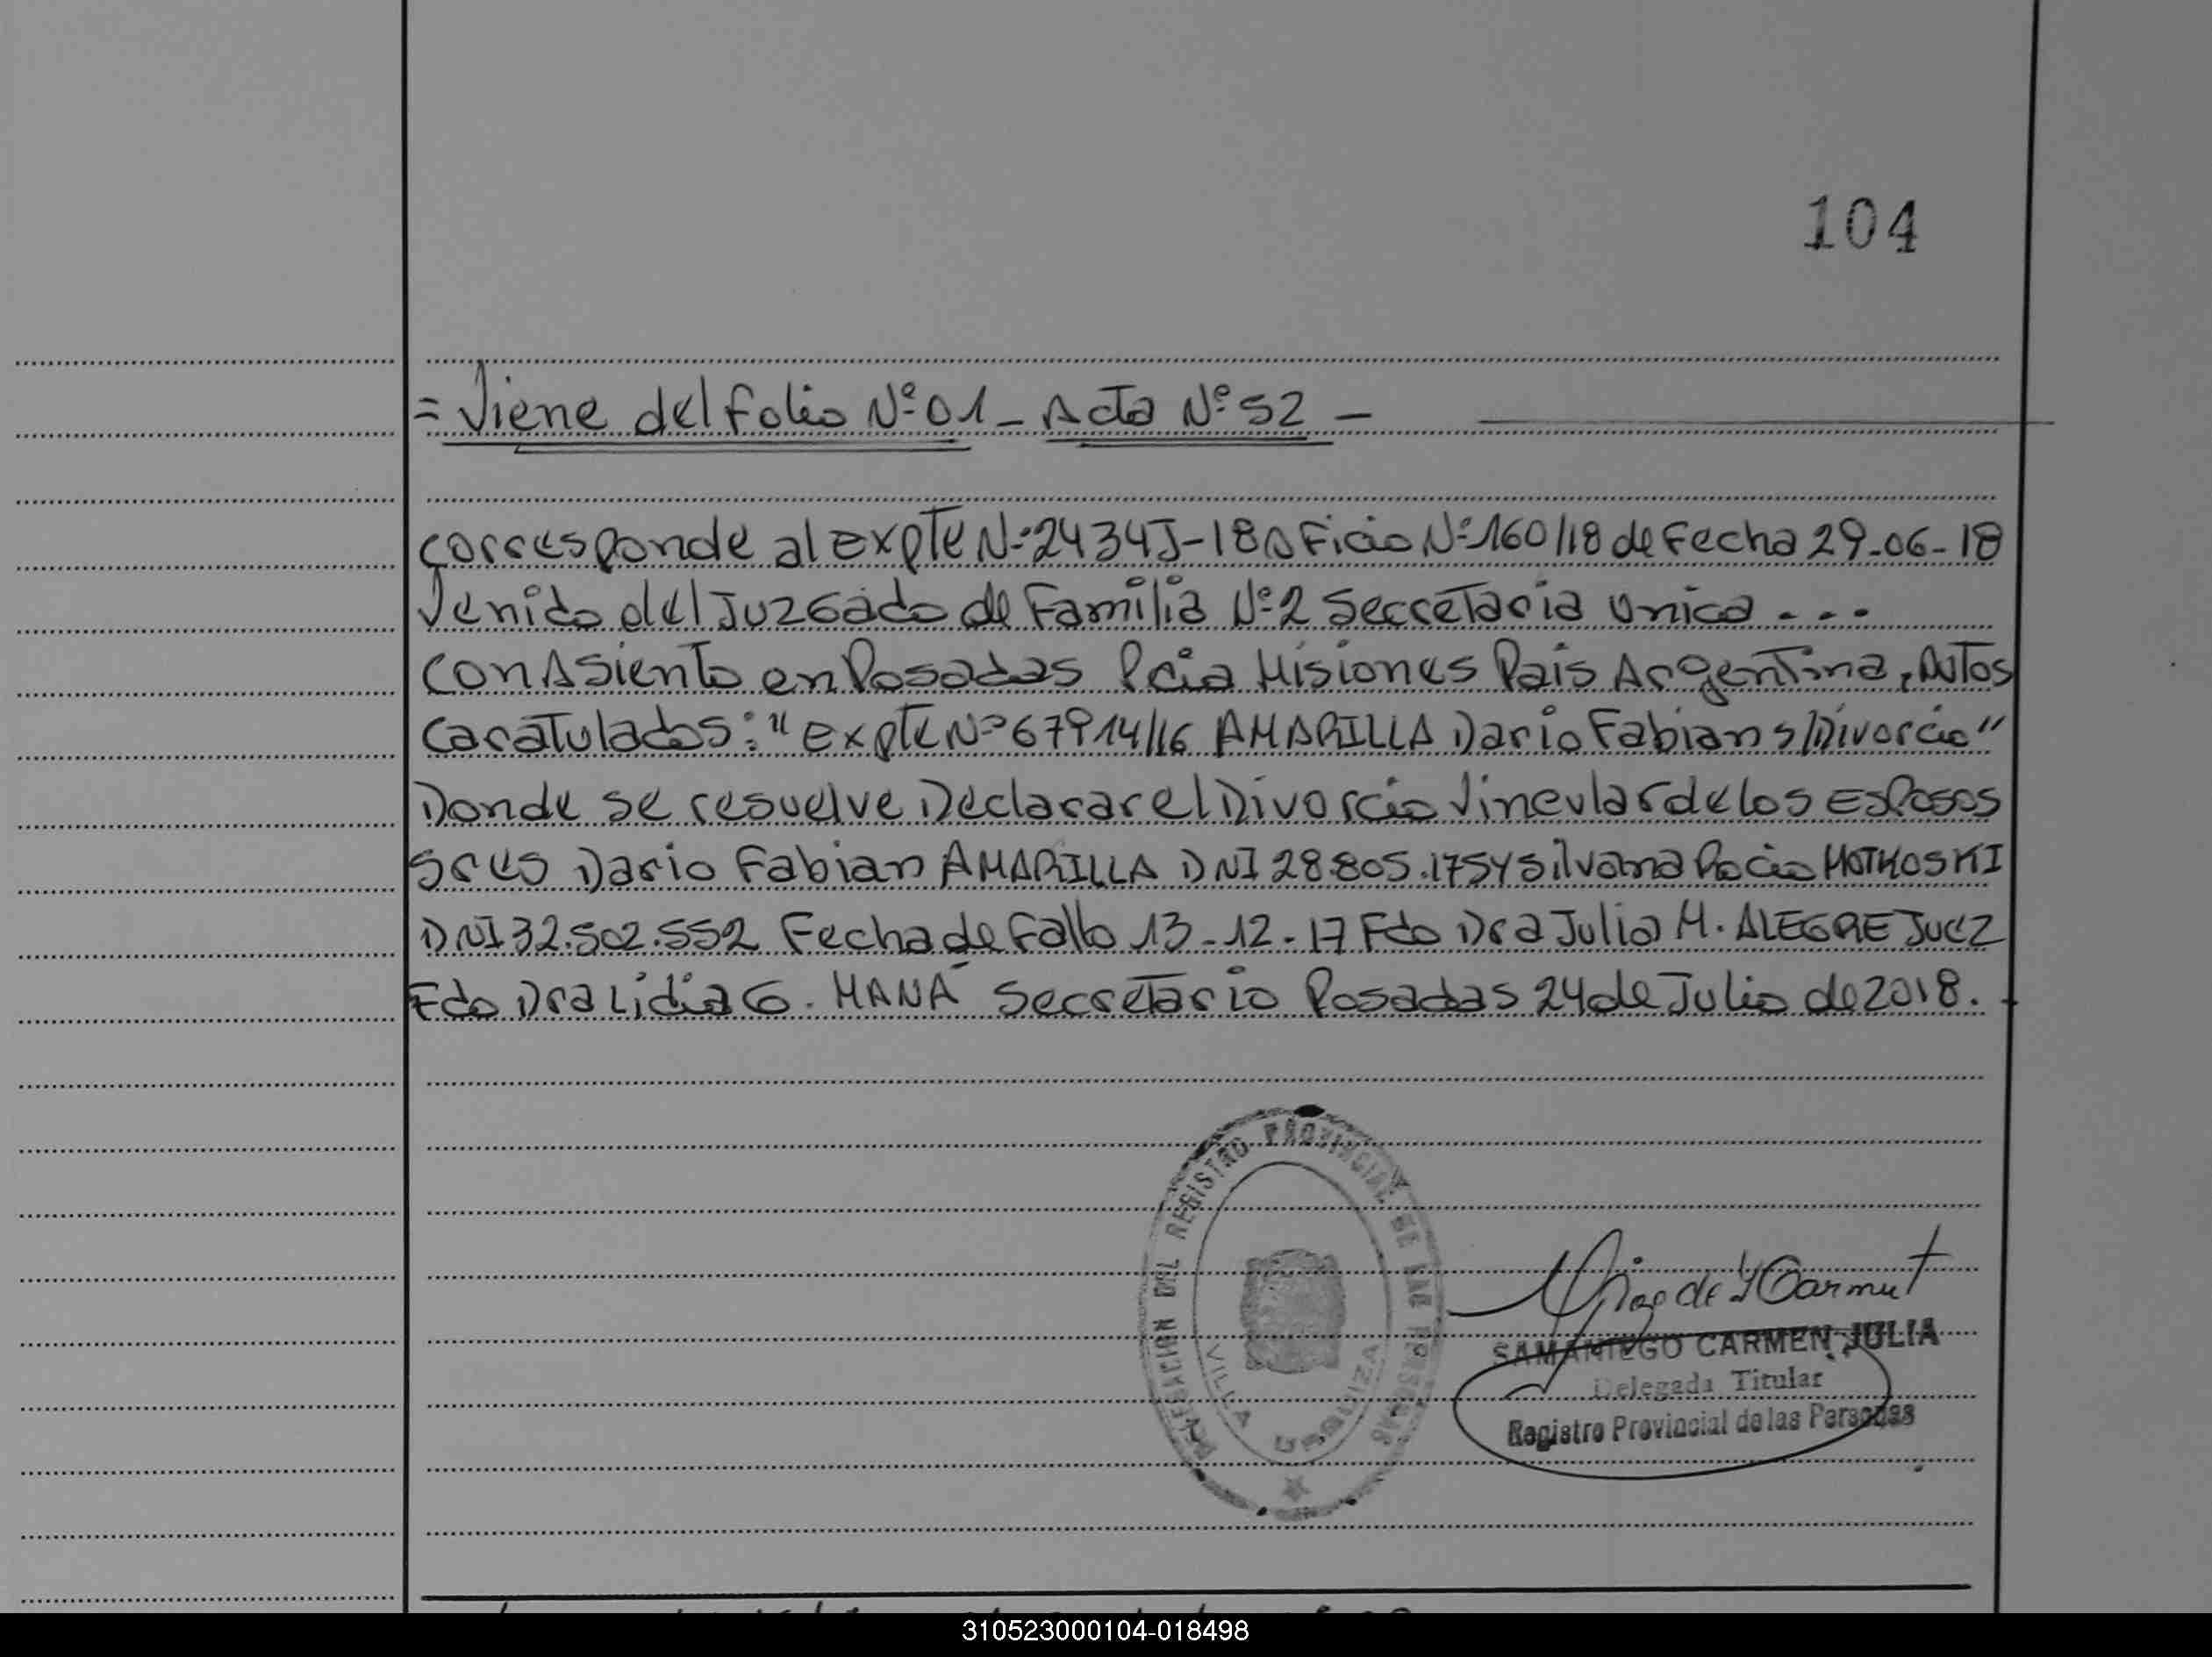 104
= Viene del folio Nº 01 - Acta Nº 52 -
corresponde al expte Nº 2434J-18 Oficio Nº 160/18 de Fecha 29-06-18
Venido del Juzgado de Familia Nº 2 Secretaria Unica - - -
con Asiento en Posadas Pcia Misiones Pais Argentina, Autos
caratulados: "expte Nº 67914/16 AMARILLA Dario Fabian s/Divorcio"
Donde se resuelve Declarar el Divorcio Vincular de los Esposos
Sres Dario Fabian AMARILLA DNI 28.805.175 y Silvana Rocio MOTKOSKI
DNI 32.502.552 Fecha de Fallo 13-12-17 Fdo Dra Julia M. ALEGRE Juez
Fdo Dra Lidia G. MANÁ Secretario Posadas 24 de Julio de 2018.
DELEGACION DEL REGISTRO PROVINCIAL DE LAS PERSONAS
VILLA URQUIZA
SAMANIEGO CARMEN JULIA
Delegada Titular
Registro Provincial de las Personas
310523000104-018498